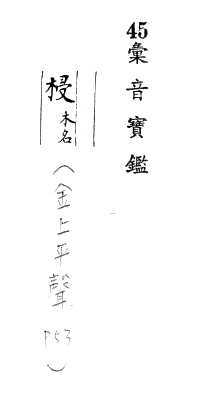 45彙音寶鑑
梫 木名
(金上平聲 P53)